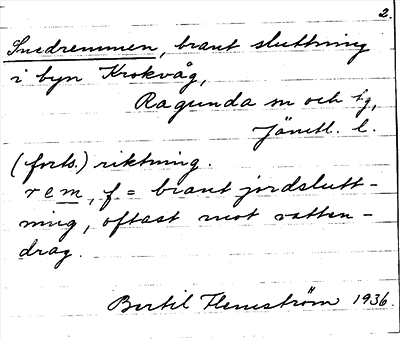 2.
Snedremmen, brant sluttning
i byn Krokvåg,
Ragunda sn och tg,
Jämtl. l.
(forts.) riktning.
rem, f = brant jordslutt-
ning, oftast mot vatten-
drag.
Bertil Flemström 1936.